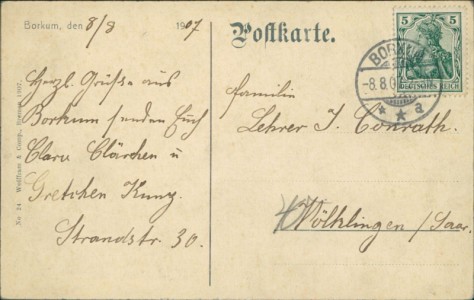 Borkum, den 8/8 1907
Herzl. Grüße aus
Borkum senden Euch
Clara Clärchen u
Gretchen Kunz.
Strandstr. 30.
Postkarte.
5 5
DEUTSCHES REICH
BORKUM
-8.8.0
* * a
Familie
Lehrer J. Conrath.
Völklingen /Saar.
No 24 Wolffram & Comp., Bremen. 1907.